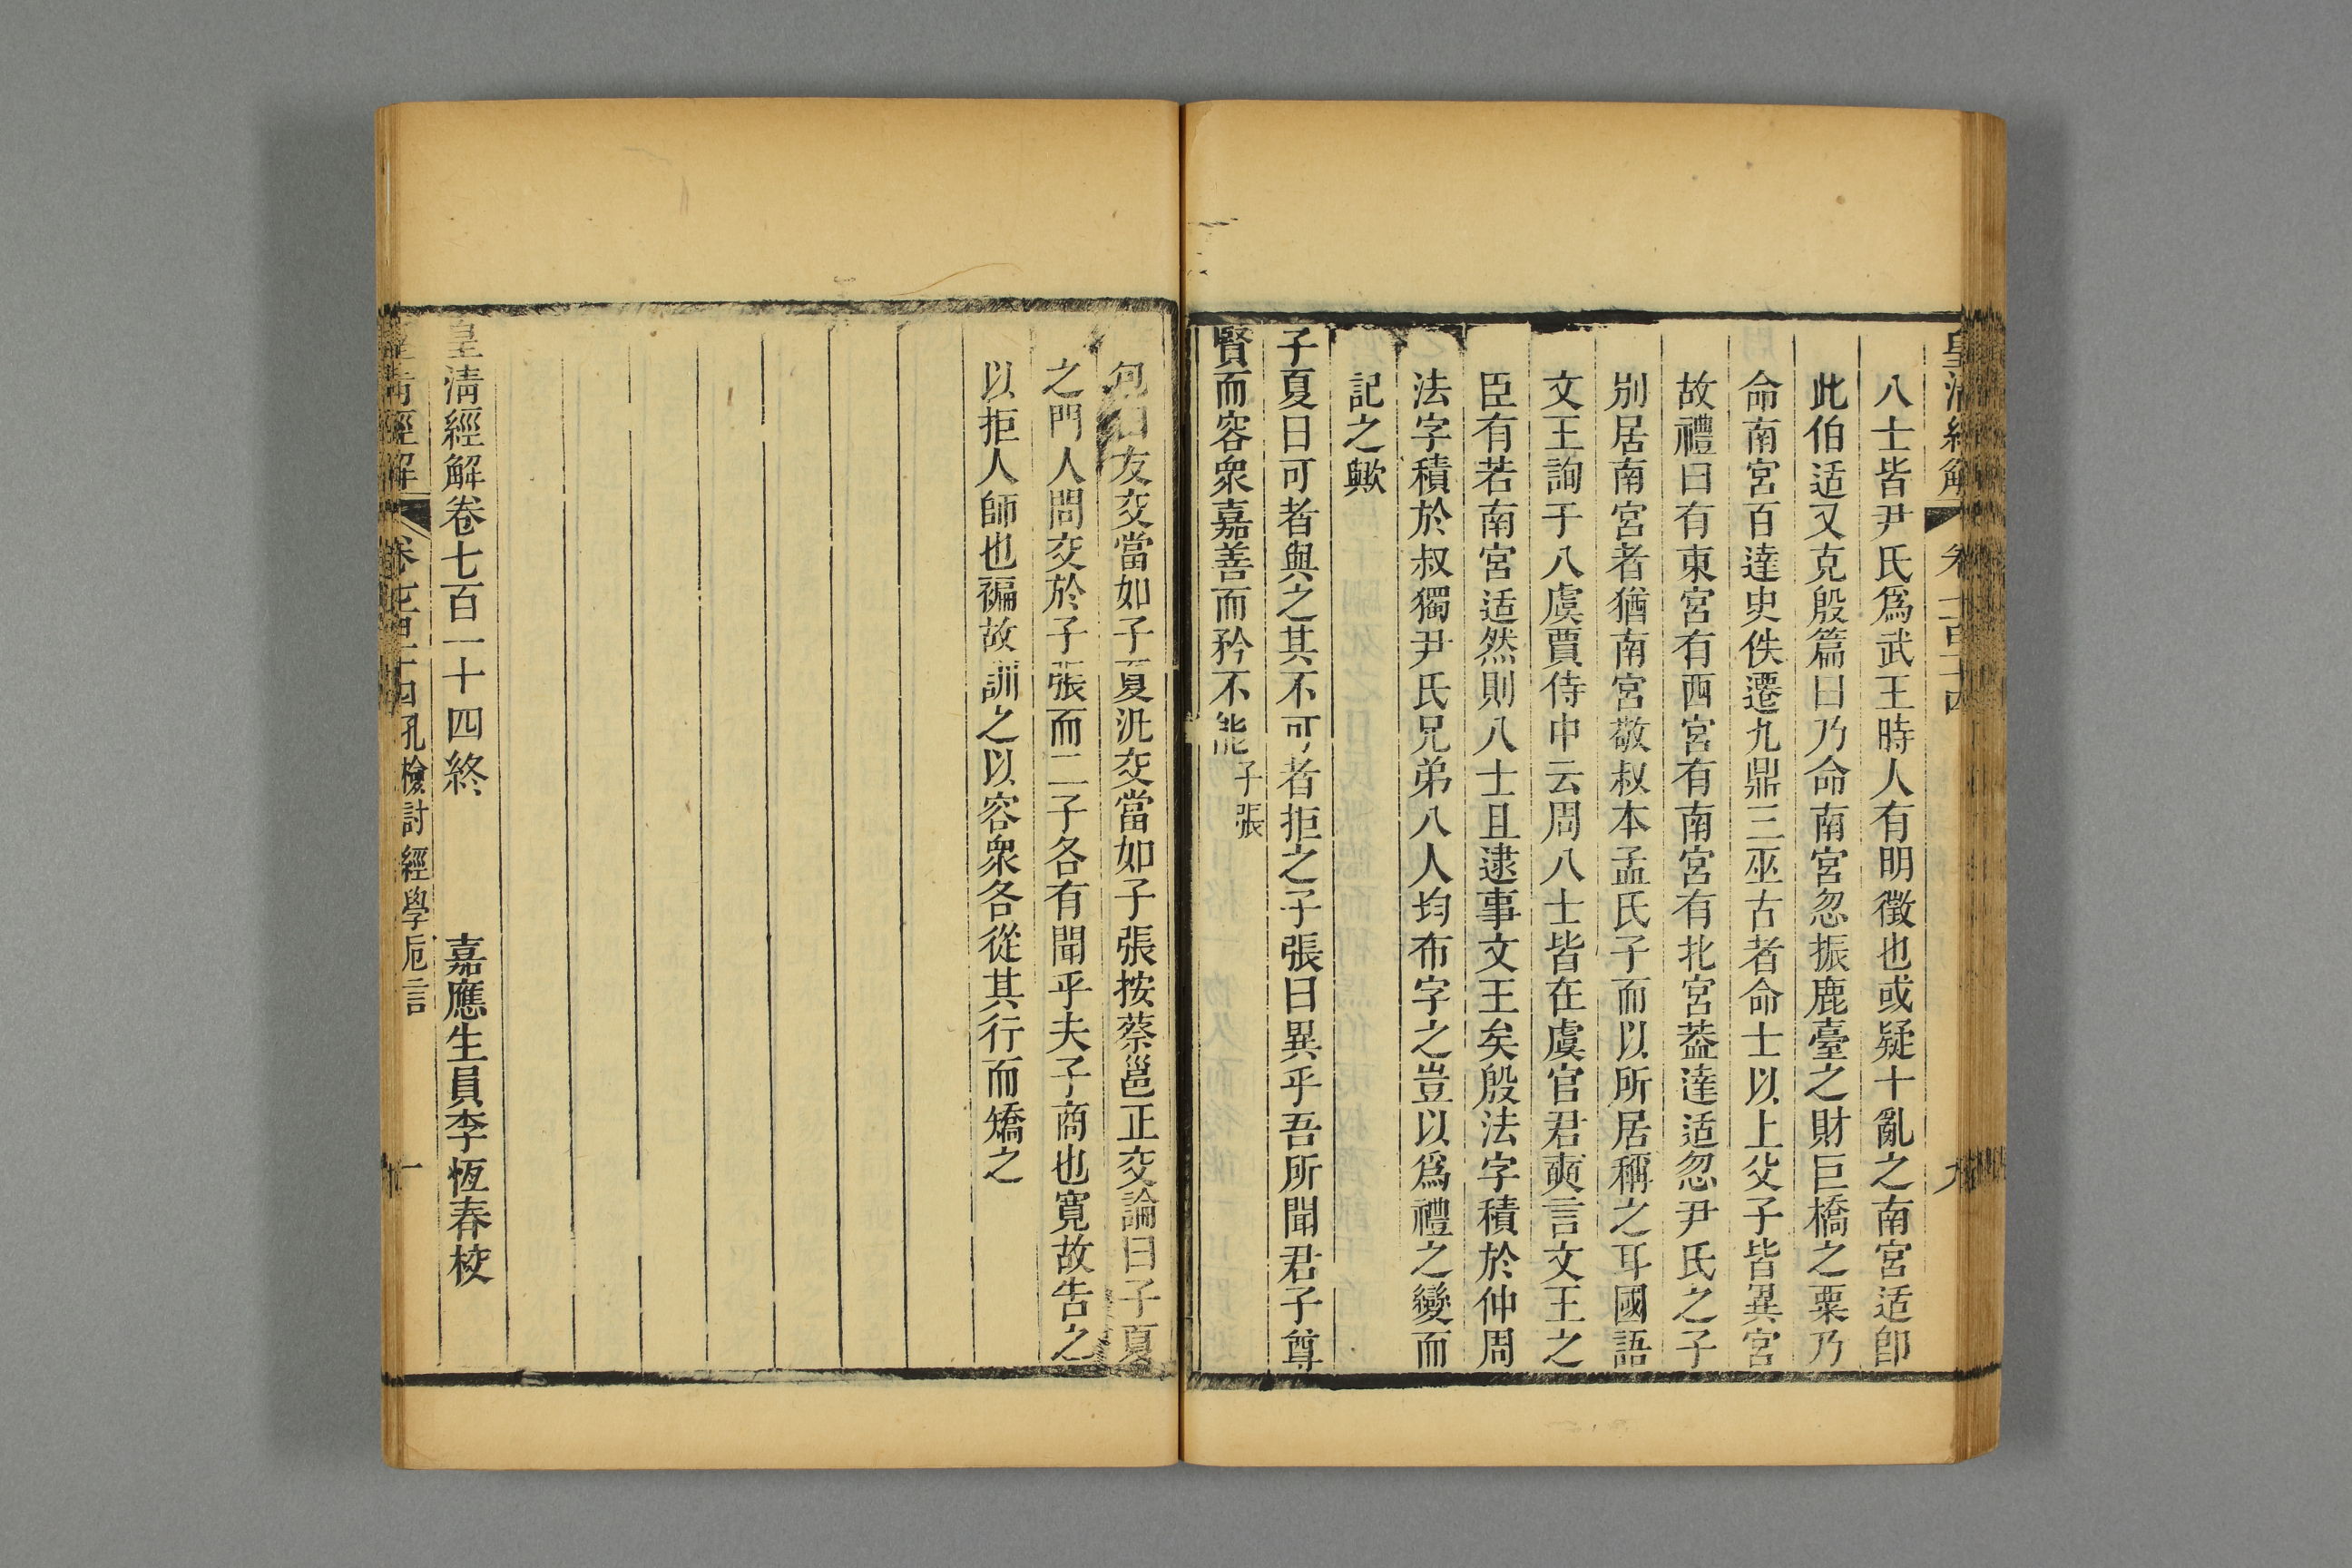 皇清經解 卷七百十四 九
八士皆尹氏爲武王時人有明徵也或疑十亂之南宮适卽
此伯适又克殷篇曰乃命南宮忽振鹿臺之財巨橋之粟乃
命南宮百達史佚遷九鼎三巫古者命士以上父子皆異宮
故禮曰有東宮有西宮有南宮有北宮葢達适忽尹氏之子
別居南宮者猶南宮敬叔本孟氏子而以所居稱之耳國語
文王詢于八虞賈侍中云周八士皆在虞官君奭言文王之
臣有若南宮适然則八士且逮事文王矣殷法字積於仲周
法字積於叔獨尹氏兄弟八人均布字之豈以爲禮之變而
記之歟
子夏曰可者與之其不可者拒之子張曰異乎吾所聞君子尊
賢而容衆嘉善而矜不能子張
包曰友交當如子夏汎交當如子張按蔡邕正交論曰子夏
之門人問交於子張而二子各有聞乎夫子商也寬故告之
以拒人師也褊故訓之以容衆各從其行而矯之
皇清經解卷七百一十四終 嘉應生員李恆春校
皇清經解 卷七百十四 孔檢討經學卮言 十